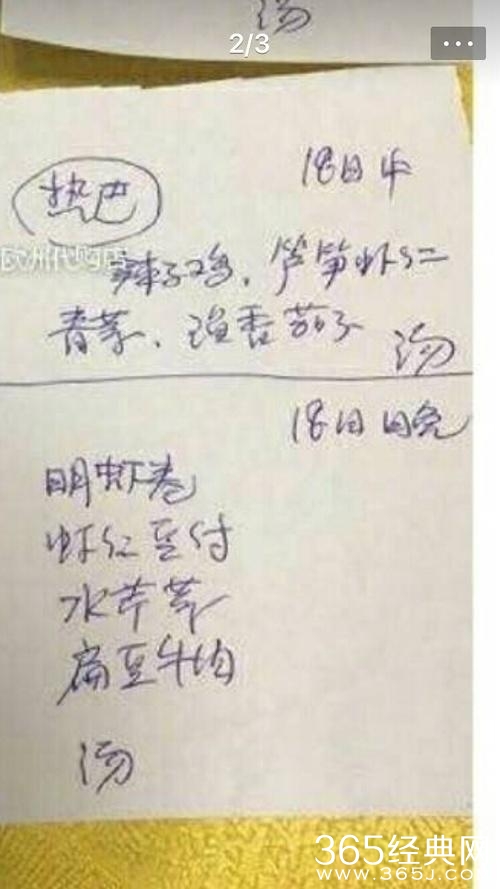 汤
2/3
18日中
热巴
欧州代购店
辣子鸡、芦笋虾仁
青菜、鱼香茄子
汤
18日晚
明虾卷
虾仁豆付
水芹菜
扁豆牛肉
汤
365经典网
www.365j.co